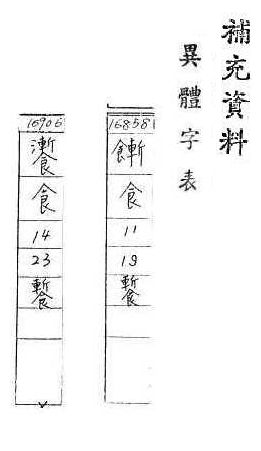 補充資料
異體字表
168581
食
11
19
16906
食
14
23